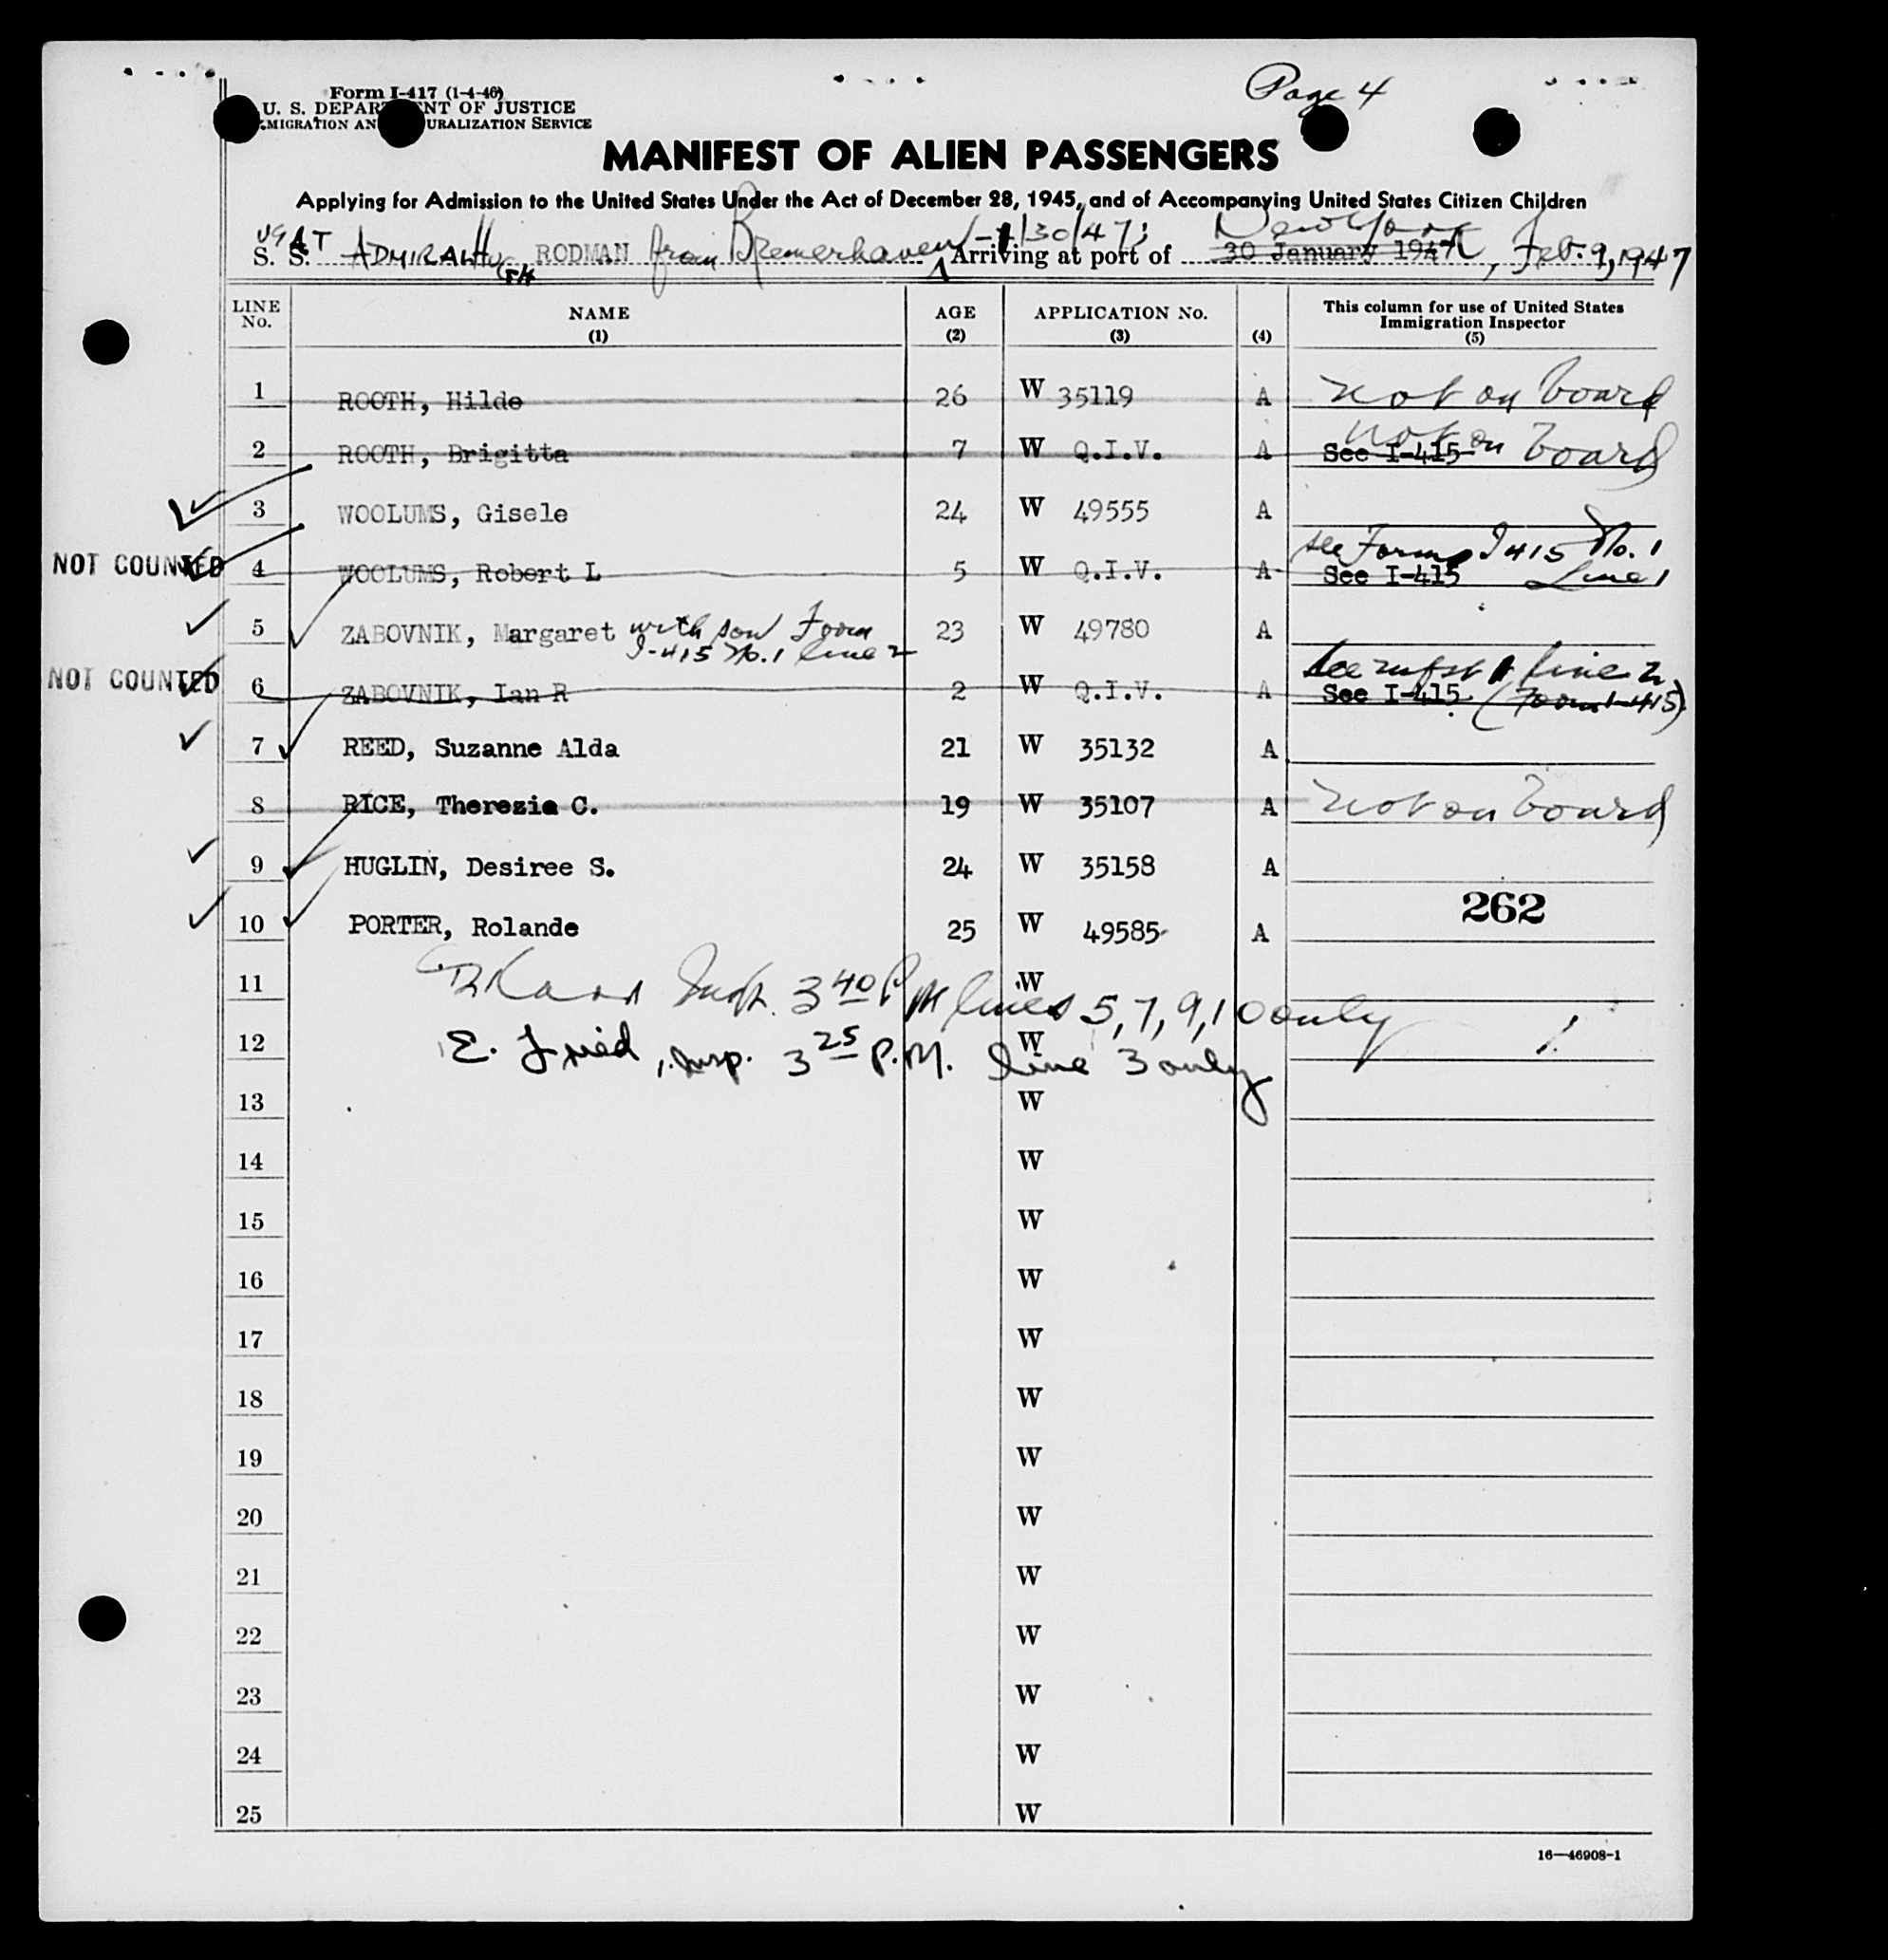 Page 4
Form I-417 (1-4-46)
U. S. DEPARTMENT OF JUSTICE
IMMIGRATION AND NATURALIZATION SERVICE
MANIFEST OF ALIEN PASSENGERS
Applying for Admission to the United States Under the Act of December 28, 1945, and of Accompanying United States Citizen Children
USAT
S. S. ADMIRAL HUGH RODMAN from Bremerhaven -1/30/47; Arriving at port of 30 January 1947 New York, Feb. 9, 1947
LINE No. NAME (1) AGE (2) APPLICATION No. (3) (4) This column for use of United States Immigration Inspector (5)
1 ROOTH, Hilde 26 W 35119 A not on board
2 ROOTH, Brigitta 7 W Q.I.V. A See I-415 not on board
3 WOOLUMS, Gisele 24 W 49555 A
see Form I 415 No. 1
NOT COUNTED 4 WOOLUMS, Robert L 5 W Q.I.V. A See I-415 Line 1
5 ZABOVNIK, Margaret with son Form 23 W 49780 A
I-415 No. 1 line 2
see line 2
NOT COUNTED 6 ZABOVNIK, Ian R 2 W Q.I.V. A See I-415 (Form I-415)
7 REED, Suzanne Alda 21 W 35132 A
8 RICE, Therezia C. 19 W 35107 A not on board
9 HUGLIN, Desiree S. 24 W 35158 A
262
10 PORTER, Rolande 25 W 49585 A
11 W
Insp. 3 40 PM lines 5, 7, 9, 10 only
12 W
E. Fried, Insp. 3 25 P.M. line 3 only
13 W
14 W
15 W
16 W
17 W
18 W
19 W
20 W
21 W
22 W
23 W
24 W
25 W
16—46908-1